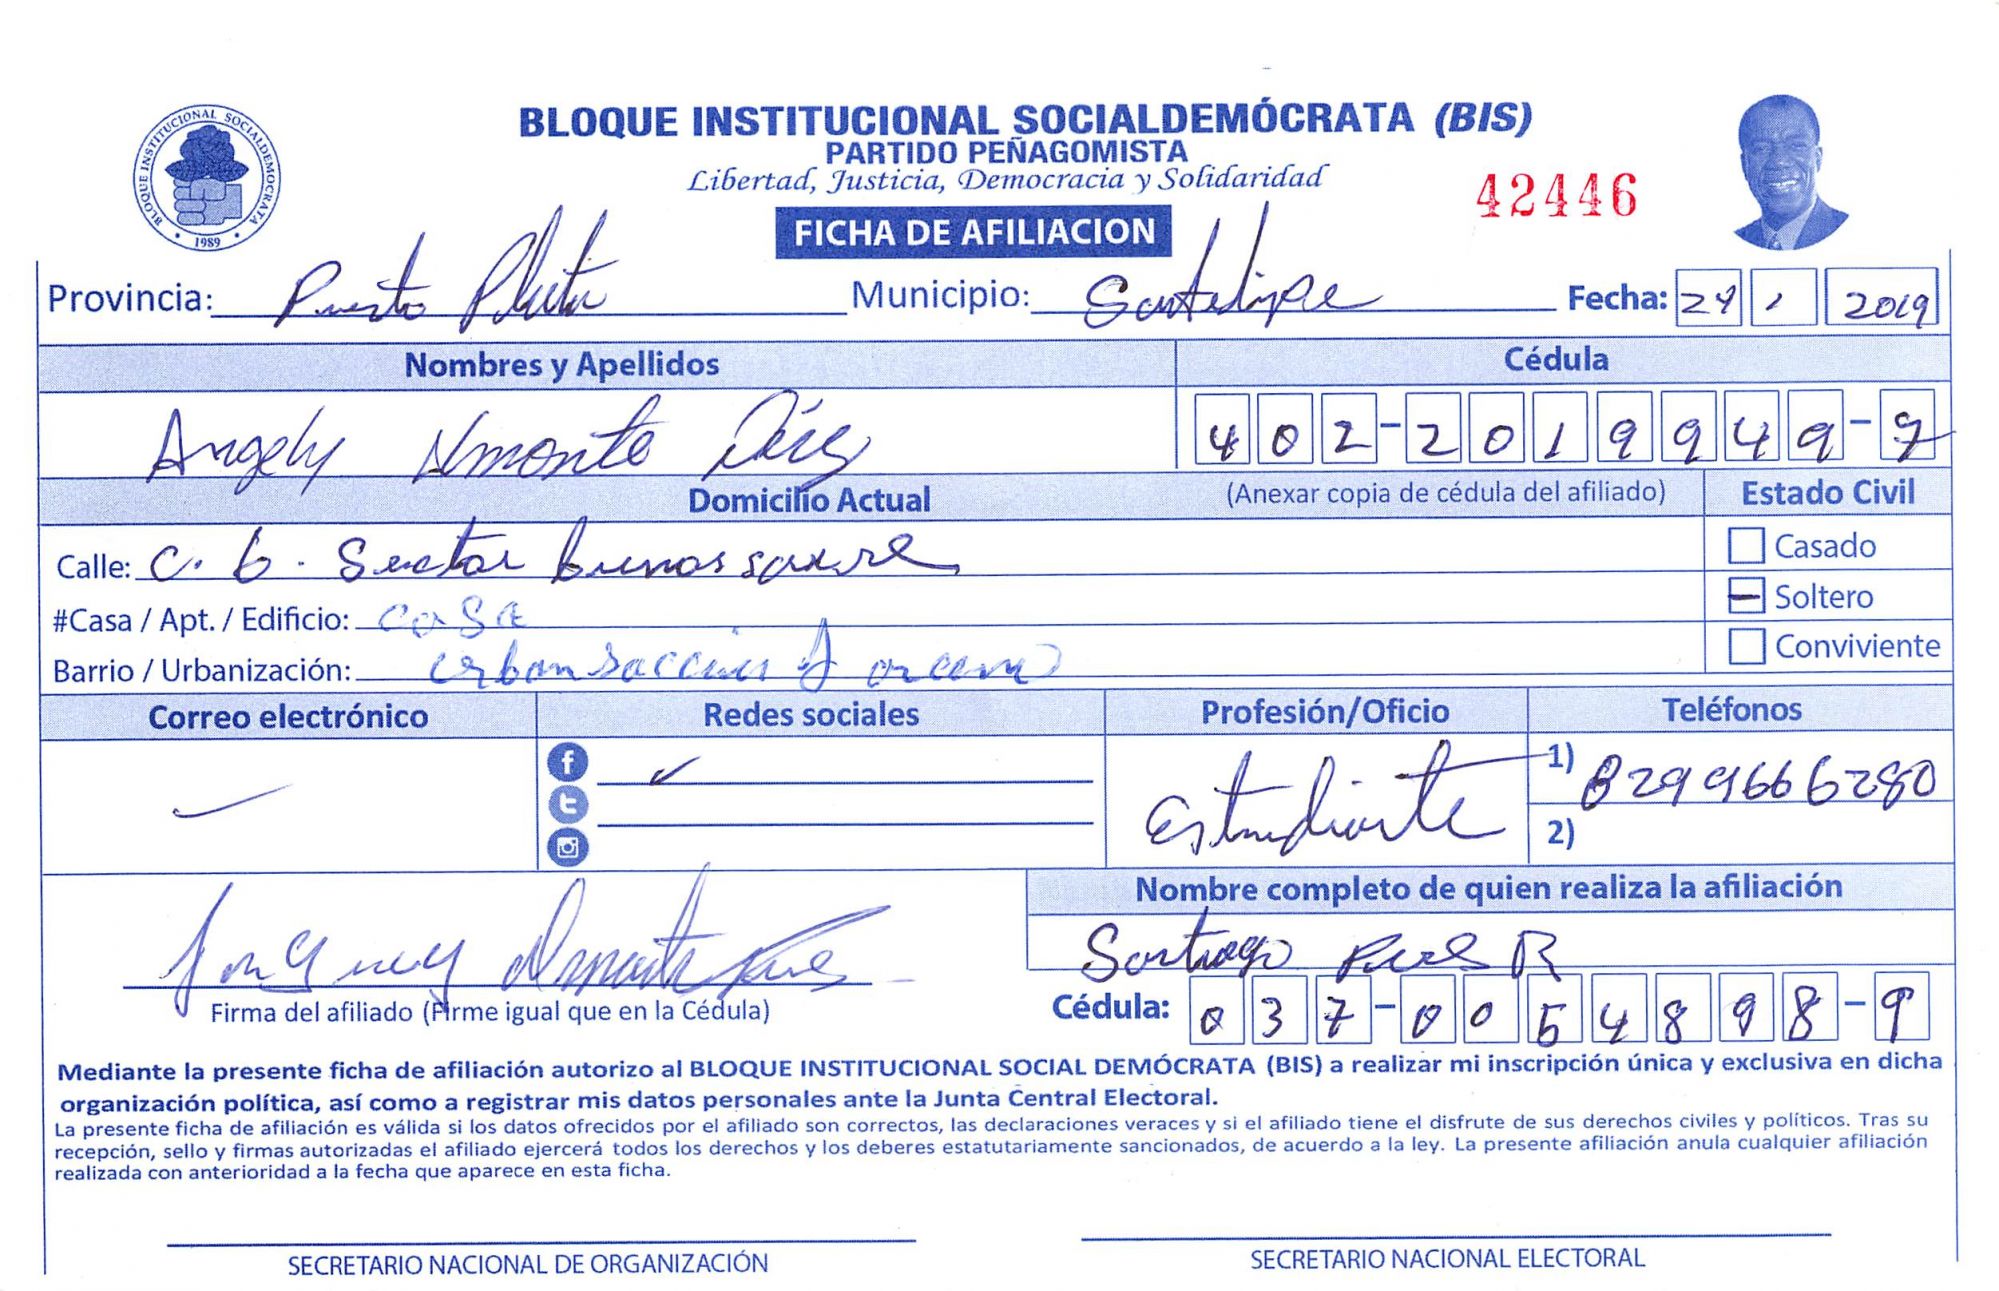 BLOQUE INSTITUCIONAL SOCIALDEMOCRATA
1989
BLOQUE INSTITUCIONAL SOCIALDEMÓCRATA (BIS)
PARTIDO PEÑAGOMISTA
Libertad, Justicia, Democracia y Solidaridad
42446
FICHA DE AFILIACION
Provincia: Puerto Plata Municipio: Fecha: 2019
Nombres y Apellidos Cédula
Angely Almonte 402-2019949-7
Domicilio Actual (Anexar copia de cédula del afiliado) Estado Civil
Calle: C. 6. Sector Casado
#Casa / Apt. / Edificio: casa Soltero
Barrio / Urbanización: Conviviente
Correo electrónico Redes sociales Profesión/Oficio Teléfonos
Estudiante 1) 8299666280
2)
Nombre completo de quien realiza la afiliación
Santiago R
Firma del afiliado (Firme igual que en la Cédula) Cédula: 037-0054898-9
Mediante la presente ficha de afiliación autorizo al BLOQUE INSTITUCIONAL SOCIAL DEMÓCRATA (BIS) a realizar mi inscripción única y exclusiva en dicha
organización política, así como a registrar mis datos personales ante la Junta Central Electoral.
La presente ficha de afiliación es válida si los datos ofrecidos por el afiliado son correctos, las declaraciones veraces y si el afiliado tiene el disfrute de sus derechos civiles y políticos. Tras su
recepción, sello y firmas autorizadas el afiliado ejercerá todos los derechos y los deberes estatutariamente sancionados, de acuerdo a la ley. La presente afiliación anula cualquier afiliación
realizada con anterioridad a la fecha que aparece en esta ficha.
SECRETARIO NACIONAL DE ORGANIZACIÓN SECRETARIO NACIONAL ELECTORAL